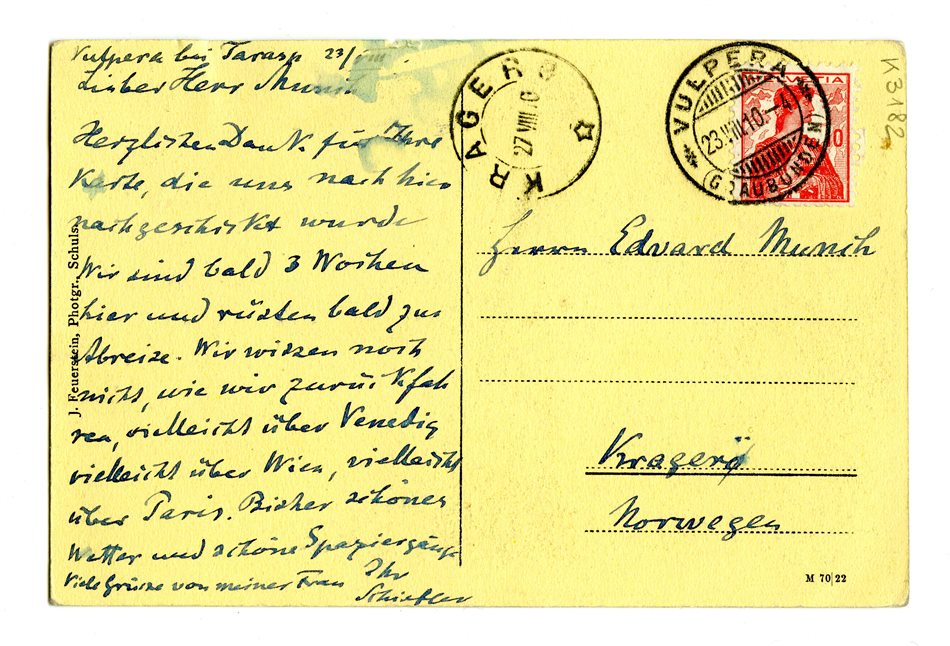 Vulpera bei Tarasp 23/VIII.
Lieber Herr Munch
Herzlichen Dank für Ihre
Karte, die uns nach hier
nachgeschickt wurde
Wir sind bald 3 Wochen
hier und rüsten bald zur
Abreise. Wir wissen noch
nicht, wie wir zurückfah
ren, vielleicht über Venedig
vielleicht über Wien, vielleicht
über Paris. Bisher schönes
Wetter und schöne Spaziergänge
Viele Grüsse von meiner Frau Ihr
Schiefler
J. Feuerstein, Photgr., Schuls.
KRAGERØ
27 VIII 10
VULPERA
23.VIII.10.–4
(GRAUBÜNDEN)
HELVETIA
K3182
Herrn Edvard Munch
Kragerö
Norwegen
M 70 22